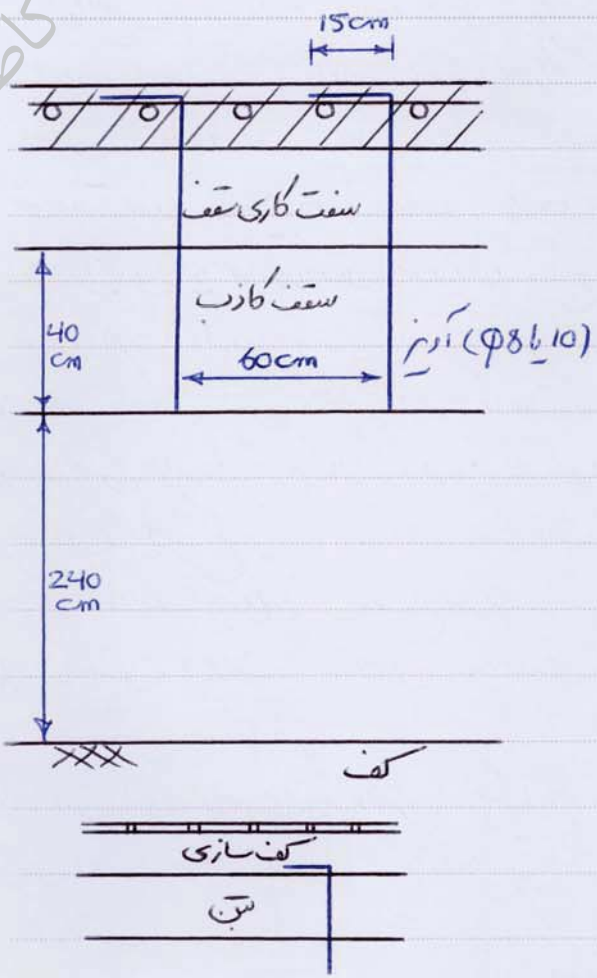 15cm
سفت کاری سقف
سقف کاذب
40
cm
60cm
آویز (Φ8 یا 10)
240
cm
کف
کف سازی
بتن